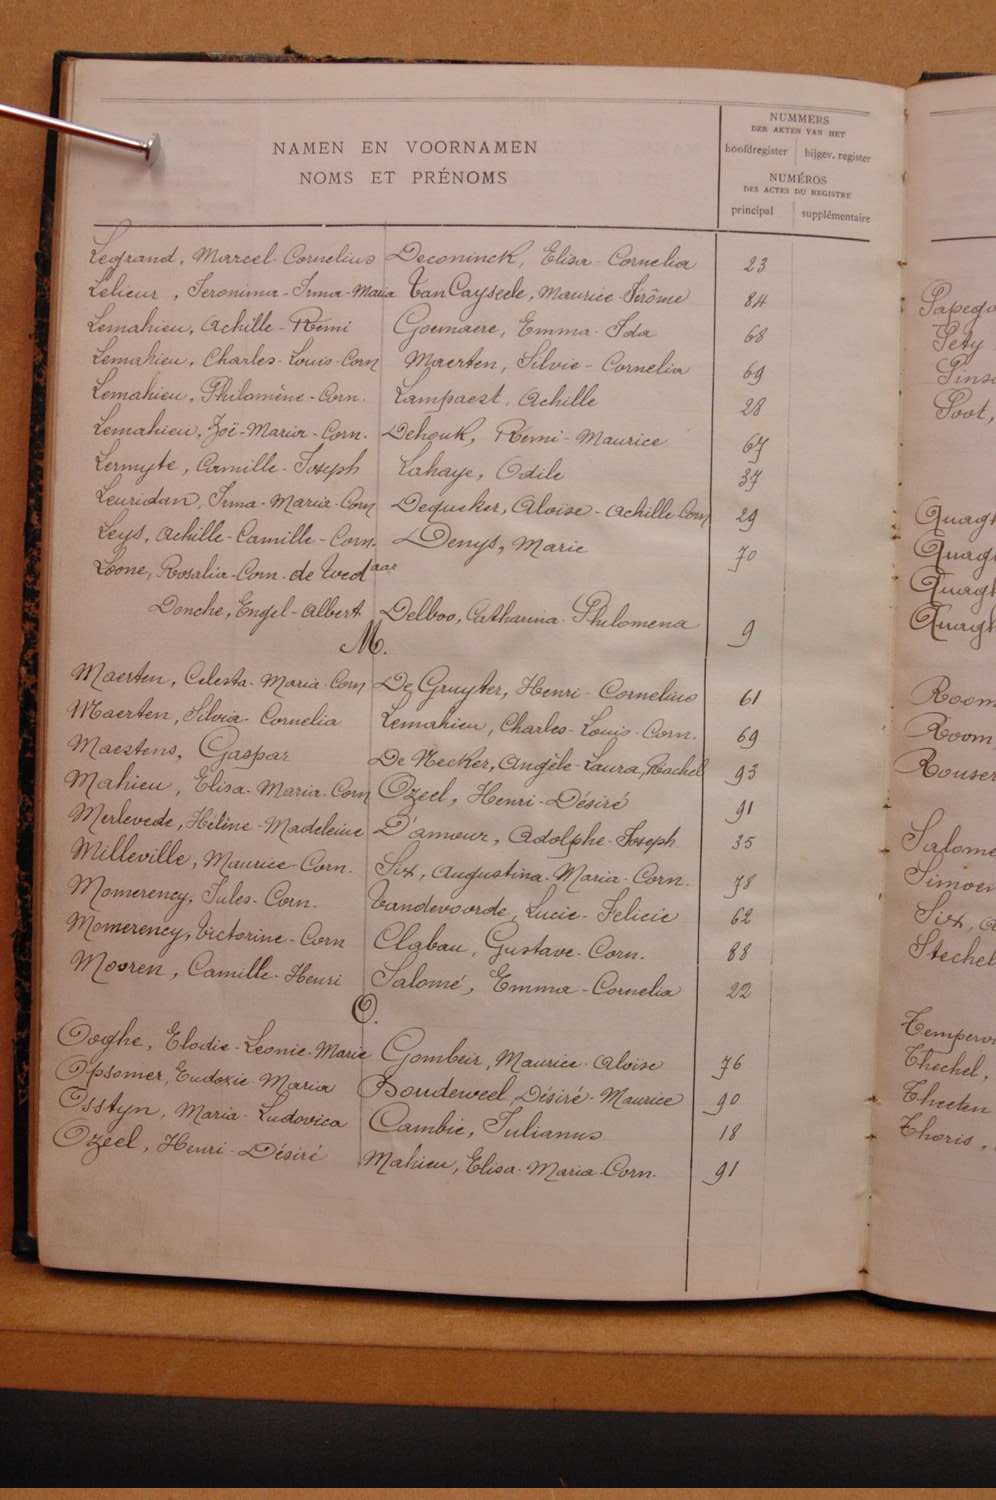 NAMEN EN VOORNAMEN
NOMS ET PRÉNOMS
NUMMERS
DER AKTEN VAN HET
hoofdregister bijgev. register
NUMÉROS
DES ACTES DU REGISTRE
principal supplémentaire
Legrand, Marcel-Cornelius Deconinck, Elisa-Cornelia 23
Lelieur, Jeronima-Irma-Maria VanCayseele, Maurice-Jérôme 84
Lemahieu, Achille-Remi Goemaere, Emma-Ida 68
Lemahieu, Charles-Louis-Corn Maerten, Silvie-Cornelia 69
Lemahieu, Philomène-Corn. Lampaest, Achille 28
Lemahieu, Zoë-Maria-Corn. Dehouk, Remi-Maurice 67
Lermyte, Camille-Joseph Lahaye, Odile 37
Leuridan, Irma-Maria-Corn Dequeker, Aloise-Achille Corn 29
Leys, Achille-Camille-Corn. Denys, Marie 70
Loone, Rosalia-Corn. de Wed aar
Donche, Engel-Albert Delboo, Catharina-Philomena 9
M.
Maerten, Celesta-Maria-Corn De Gruyter, Henri-Cornelius 61
Maerten, Silvia-Cornelia Lemahieu, Charles-Louis-Corn. 69
Maestens, Gaspar De Necker, Angèle-Laura, Rachel 93
Mahieu, Elisa-Maria-Corn Ozeel, Henri-Désiré 91
Merlevede, Hélène-Madeleine D'amour, Adolphe-Joseph. 35
Milleville, Maurice-Corn. Six, Augustina-Maria-Corn. 78
Momerency, Jules-Corn. Vandevoorde, Lucie-Felicie 62
Momerency, Victorine-Corn Clabau, Gustave-Corn. 88
Mooren, Camille-Henri Salomé, Emma-Cornelia 22
O.
Ooghe, Elodie-Leonie-Marie Gombeir, Maurice-Aloise 76
Opsomer, Eudoxie-Maria Bouderweel, Désiré-Maurice 90
Osstyn, Maria-Ludovica Cambie, Julianus 18
Ozeel, Henri-Désiré Mahieu, Elisa-Maria-Corn. 91
Pety
Poot,
Quagh
Quagh
Quagh
Quagh
Room
Room
Rouser
Salome
Simoen
Six,
Stechel
Thechel,
Theeten
Thoris,